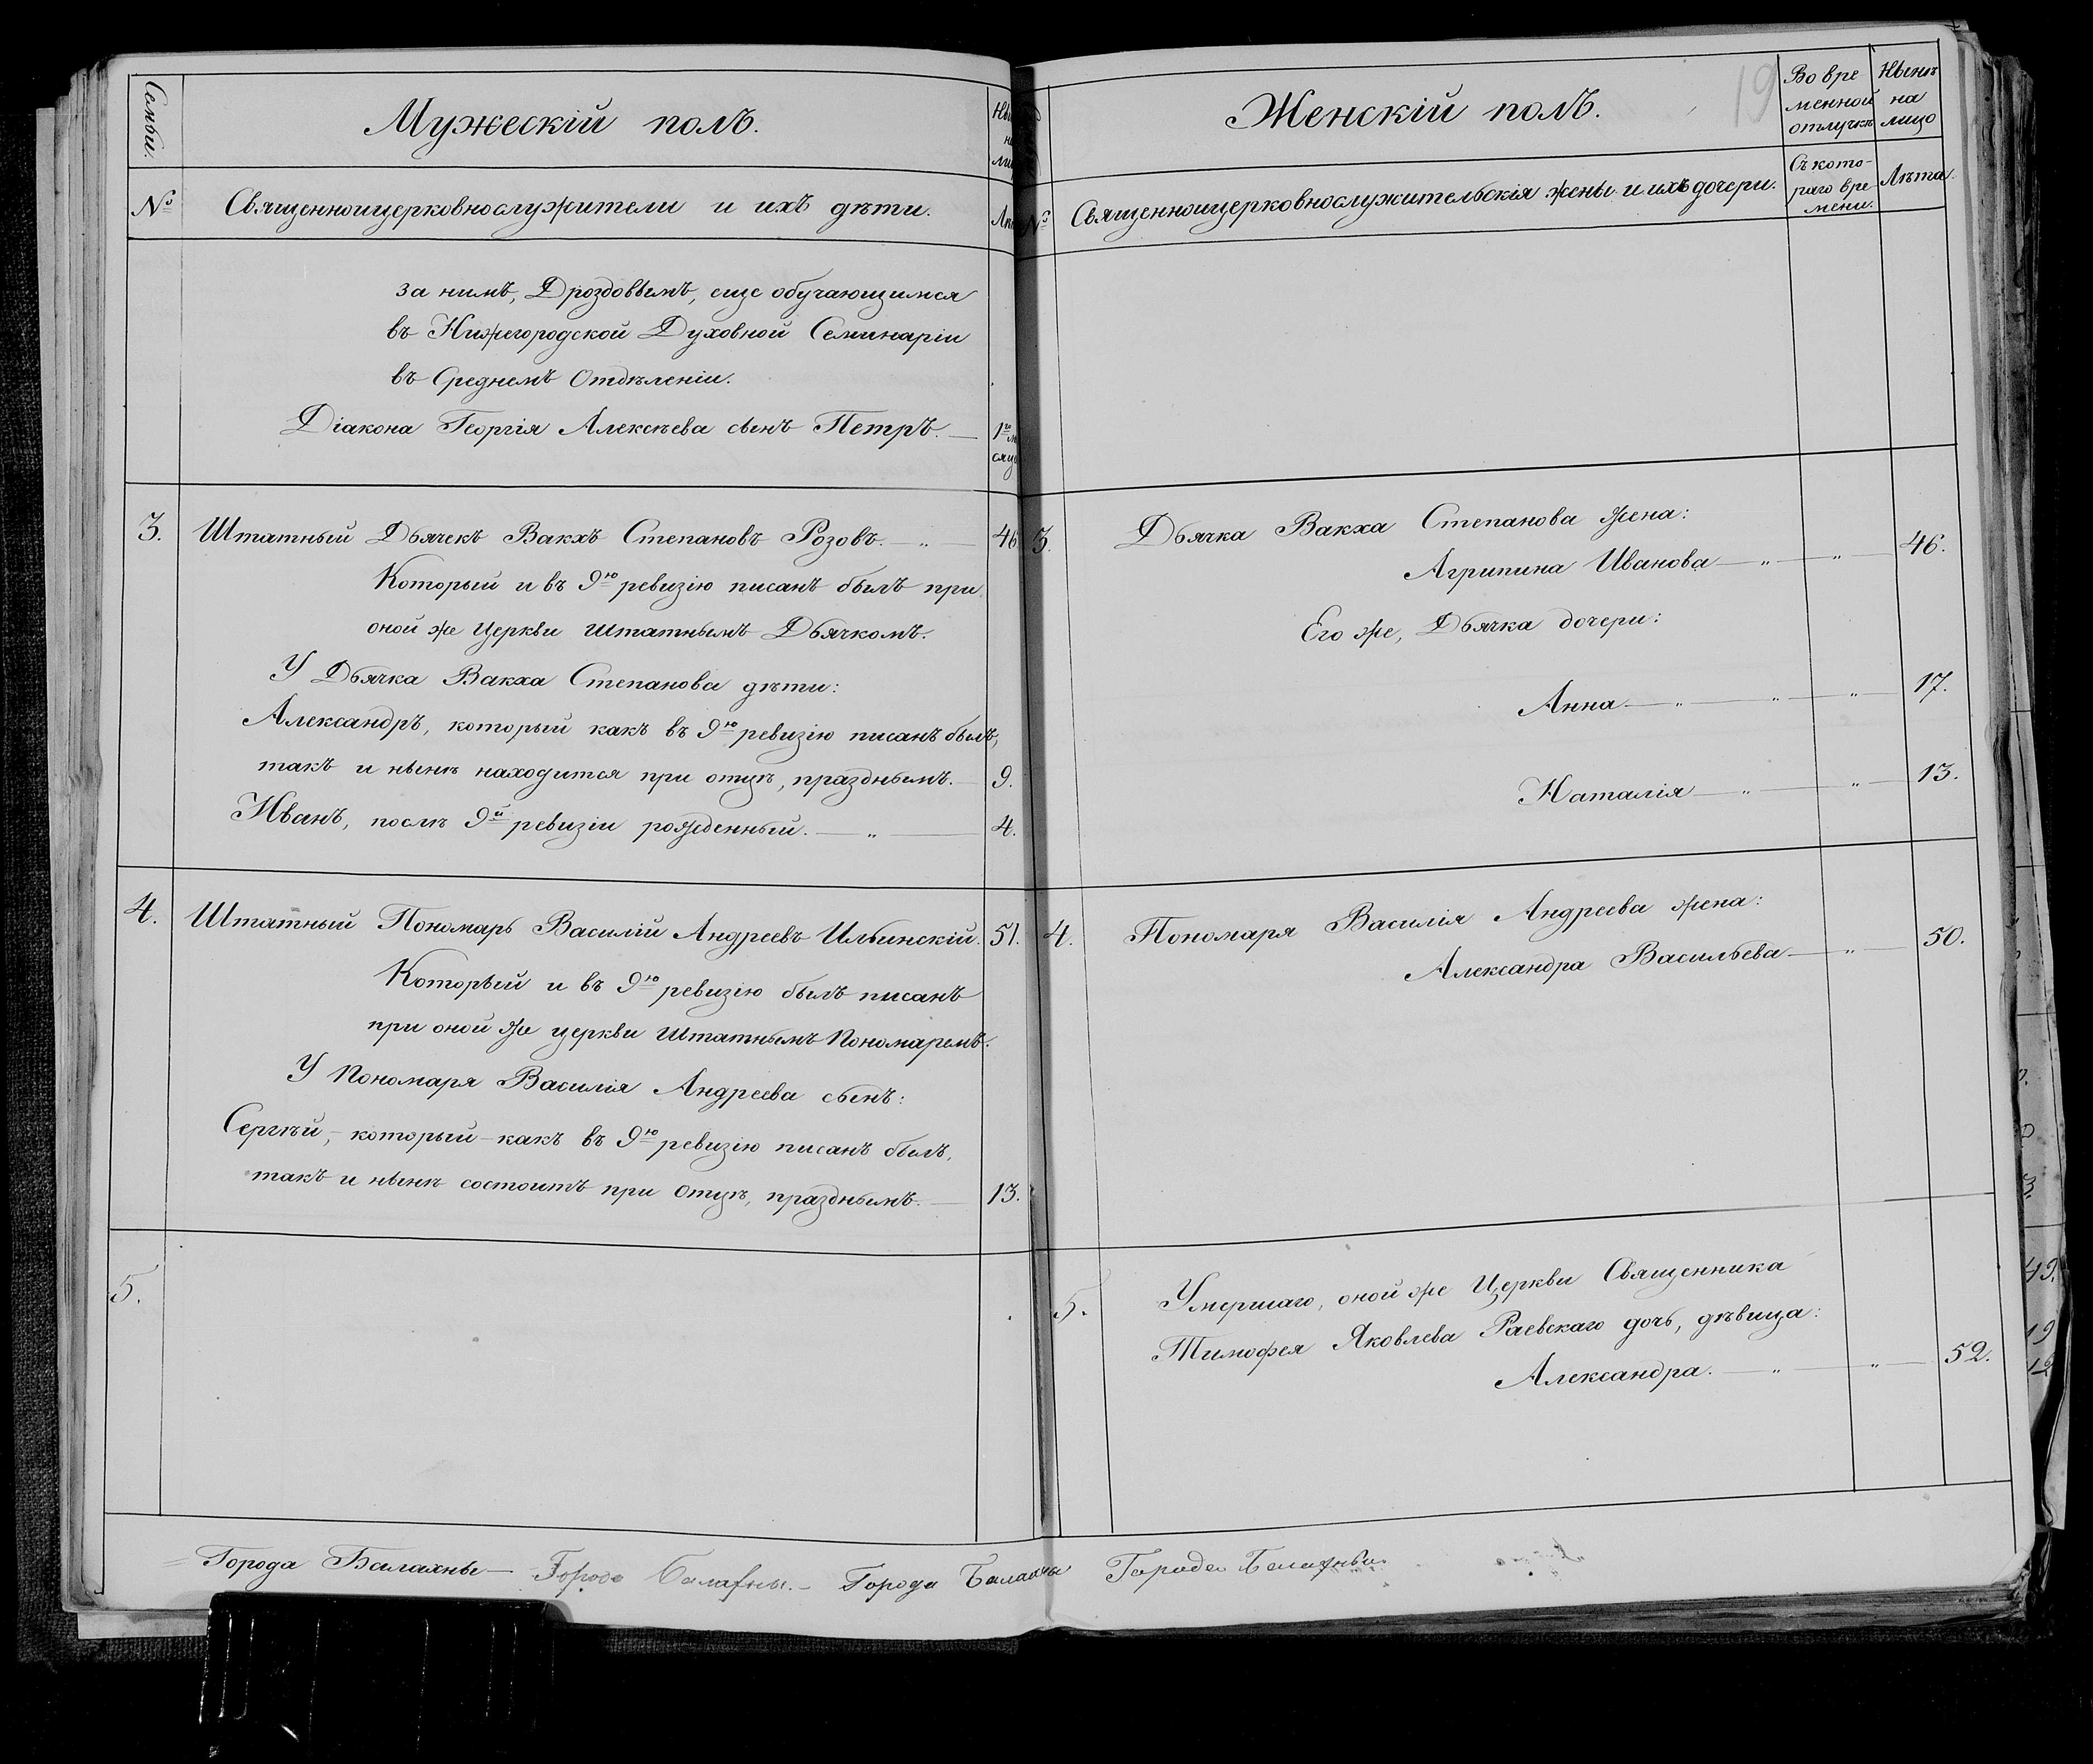 Семьи.
Мужескій полъ.
№
Священноицерковнослужители и ихъ дѣти.
за нимъ, Дроздовымъ, еще обучающимся
въ Нижегородской Духовной Семинаріи
въ Среднемъ Отдѣленіи.
Діакона Георгія Алексѣева сынъ Петръ.
3. Штатный Дьячекъ Вакхъ Степановъ Розовъ. — „ — 46
Который и въ 9ю ревизію писанъ былъ при
оной же Церкви штатнымъ Дьячкомъ.
У Дьячка Вакха Степанова дѣти:
Александръ, который какъ въ 9ю ревизію писанъ былъ,
такъ и нынѣ находится при отцѣ, празднымъ. — 9.
Иванъ, послѣ 9й ревизіи рожденный. — „ — 4.
4. Штатный Пономарь Василій Андреевъ Ильинскій. 51.
Который и въ 9ю ревизію былъ писанъ
при оной же церкви штатнымъ Пономаремъ.
У Пономаря Василія Андреева сынъ:
Сергѣй, который какъ въ 9ю ревизію писанъ былъ,
такъ и нынѣ состоитъ при Отцѣ, празднымъ. — 13.
5.
Города Балахны — Города Балахны. — Города Балахны Города Балахны
Женскій полъ.
19
Во вре
менной
отлучкѣ
Нынѣ
на
лицо
№
Священноицерковнослужительскія жены и ихъ дочери.
Съ кото-
раго вре
мени.
Лѣта.
3. Дьячка Вакха Степанова жена:
Агрипина Иванова — „ — „ — 46.
Его же, Дьячка дочери:
Анна — „ — „ — „ — 17.
Наталія — „ — „ — 13.
4. Пономаря Василія Андреева жена:
Александра Васильева — „ — 50.
5. Умершаго, оной же Церкви Священника
Тимофея Яковлева Раевскаго дочь, дѣвица:
Александра. — „ — „ — 52.